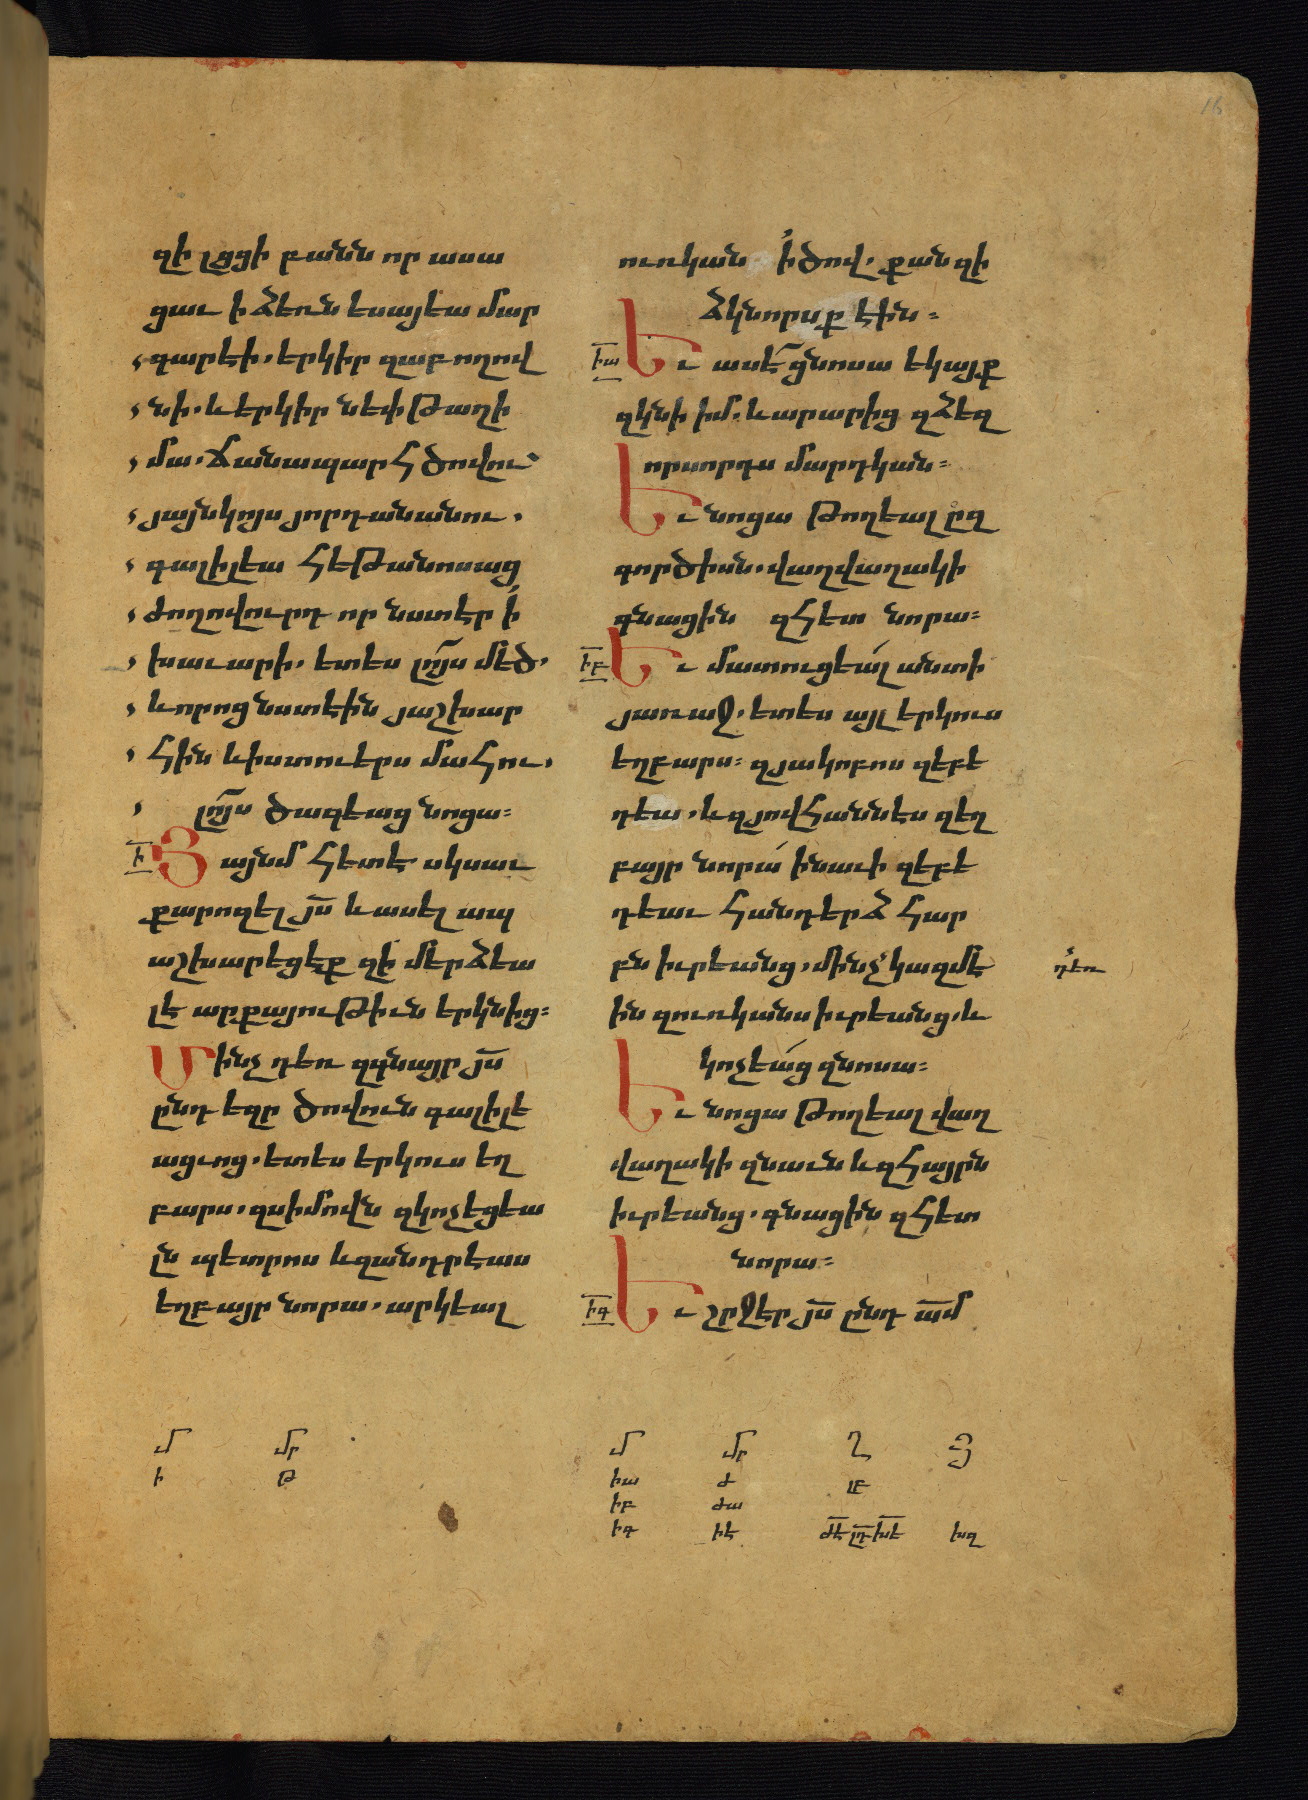 զի լցցի բանն որ ասա
ցաւ ի ձեռն եսայեա մար
գարէի. երկիր զաբողով
նի. և երկիր նեփթաղի
մա. ճանապարհ ծովու՝
յայնկոյս յորդանանու.
գալիլեա հեթանոսաց
ժողովուրդ որ նստէր ի՛
խաւարի. ետես լո՜յս մեծ.
և որոց նստէին յաշխար
հին և ի ստուերս մահու.
լո՜յս ծագեաց նոցա։
Ի Յ այնմ հետէ սկսաւ
քարոզել յս̅ և ասել ապ
աշխարեցէք զի մերձեա
լ է արքայութիւն երկնից։
Մինչ դեռ զգնայր յս̅
ընդ եզր ծովուն գալիլե
ացւոց. ետես երկուս եղ
բարս. զսիմովն զկոչեցեա
լն պետրոս և զանդրէաս
եղբայր նորա. արկեալ
ուռկան ի՛ ծով. քանզի
ձկնորսք էին։
ԻԱ Եւ ասէ՜ ցնոսա եկայք
զկնի իմ. և արարից զձեզ
որսորդս մարդկան։
Եւ նոցա թողեալ ըզ
գործիսն. վաղվաղակի
գնացին զհետ նորա։
ԻԲ Եւ մատուցեա՛լ անտի
յառաջ. ետես այլ երկուս
եղբարս։ զյակոբոս զեբե
դեա. և զյովհաննես զեղ
բայր նորա՛ ի նաւի զեբե
դեաւ հանդերձ հար
բն իւրեանց. մինչ՛ կազմէ
դեռ
ին զուռկանս իւրեանց. և
կոչեա՛ց զնոսա։
Եւ նոցա թողեալ վաղ
վաղակի զնաւն և զհայրն
իւրեանց. գնացին զհետ
նորա։
ԻԳ Եւ շրջէր յս̅ ընդ ա̅մ
մ մր
ի թ
մ մր ղ յ
իա ժ լբ
իբ ժա
իգ իէ ժէ լդ խե խզ